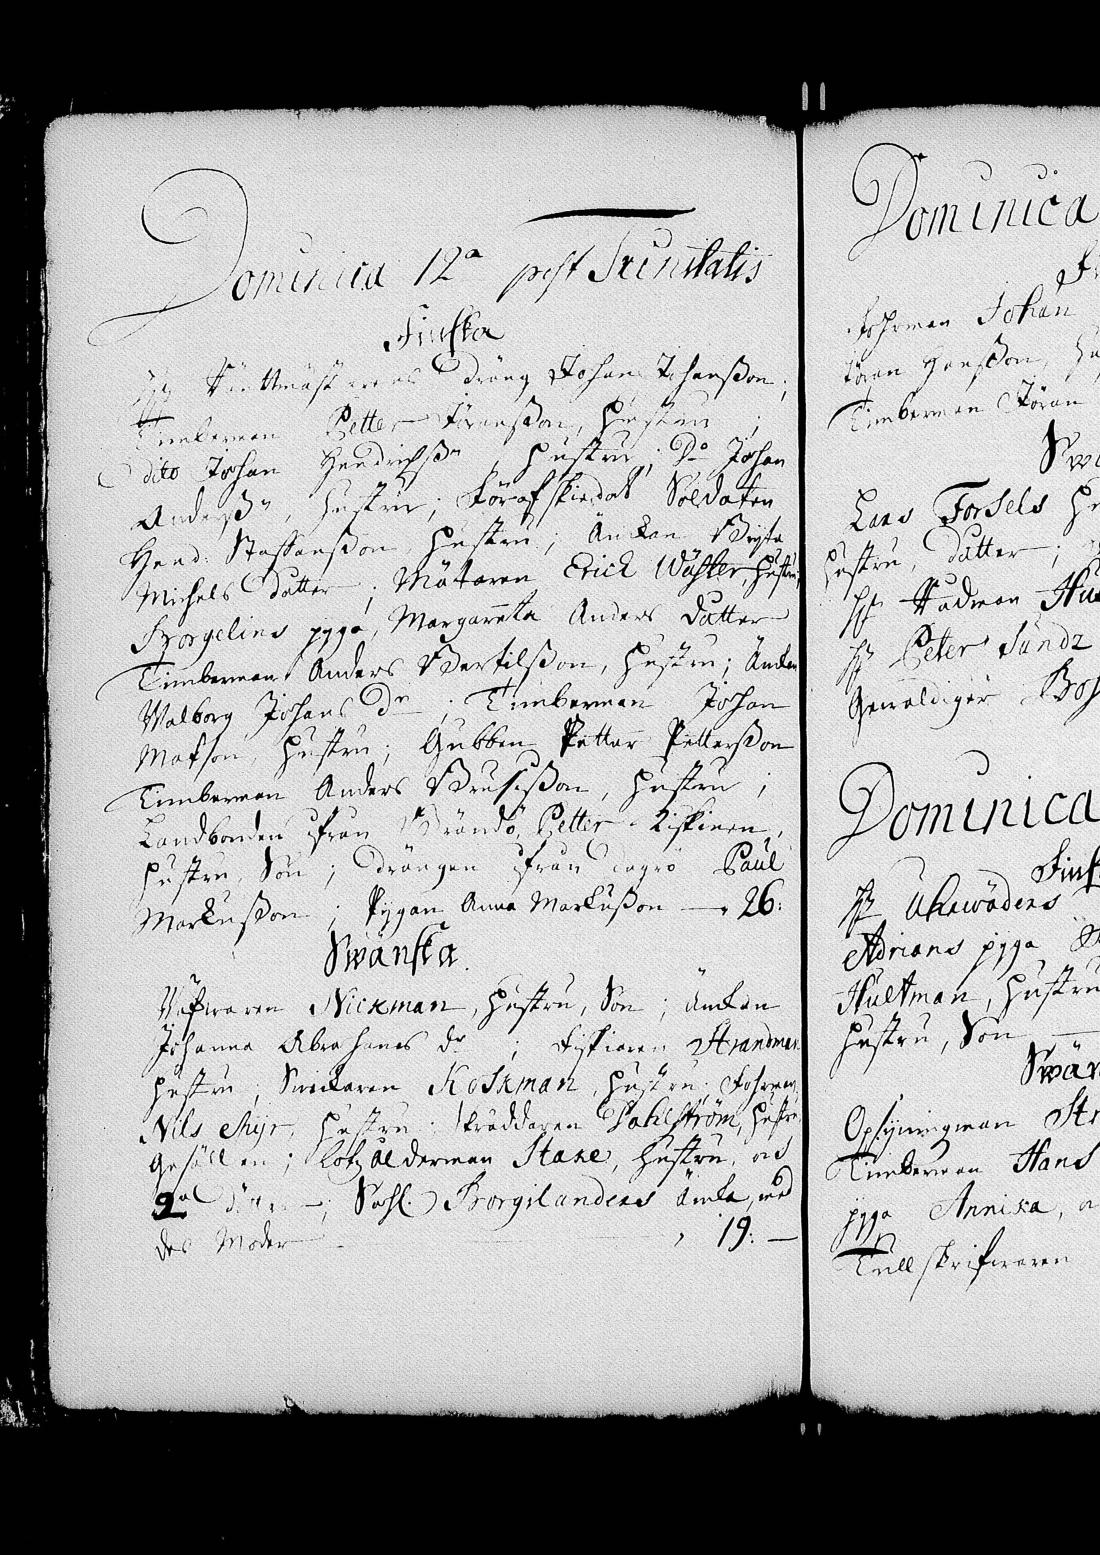 Dominica 12a post Trinitatis
Finska
Hr dräng Johan Johanßon;
Timberman Petter Jöranßon, hustru;
dito Johan Hendrichßn, hustru; Do Johan
Anderßn, hustru; Förafskiedat Soldaten
Hend: Staffanßon, hustru; Änkan Brijta
Michels dotter; Mätaren Erick Wäster, hustru,
Borgelins pyga, Margareta Anders dotter
Timberman Anders Bertilßon, hustru; Änkan
Walborg Johans dr; Timberman Johan
Matson, hustru; Gubben Petter Petterßon
Timberman Anders Brusißon, hustru;
Landbonden ifrån Brändö, Petter Kiskinen,
hustru, Son; drängen ifrån Paul
Markußon; Pygan Anna Markußon 26:
Swänska.
Wäfwaren Nickman, hustru, Son; Änkan
Johanna Abrahams dr; Fiskiaren Strandman
hustru; Snickaren Koskman, hustru; Fohrman
Nils hustru; Skräddaren Dahlström, hustru
Gesällen; Lotz ålderman Stake, hustru, och
2a Döttrar; Sahl. Borgilanders Änka, med
des Moder 19:
Dominica
Fohrman Johan
Jöran Hanßon, hu
Timberman Jöran
Swä
Lars Forsels
hustru, dotter;
Hr Rådman Hu
Hr Peter Sundz
Gewaldiger Bos
Dominica
Finsk
Hr Uhrwäders
Adrians pyga
Hultman, hustru
hustru, Son
Swän
Opsyningman Str
Timberman Hans
pyga Annika,
Tullskrifwaren